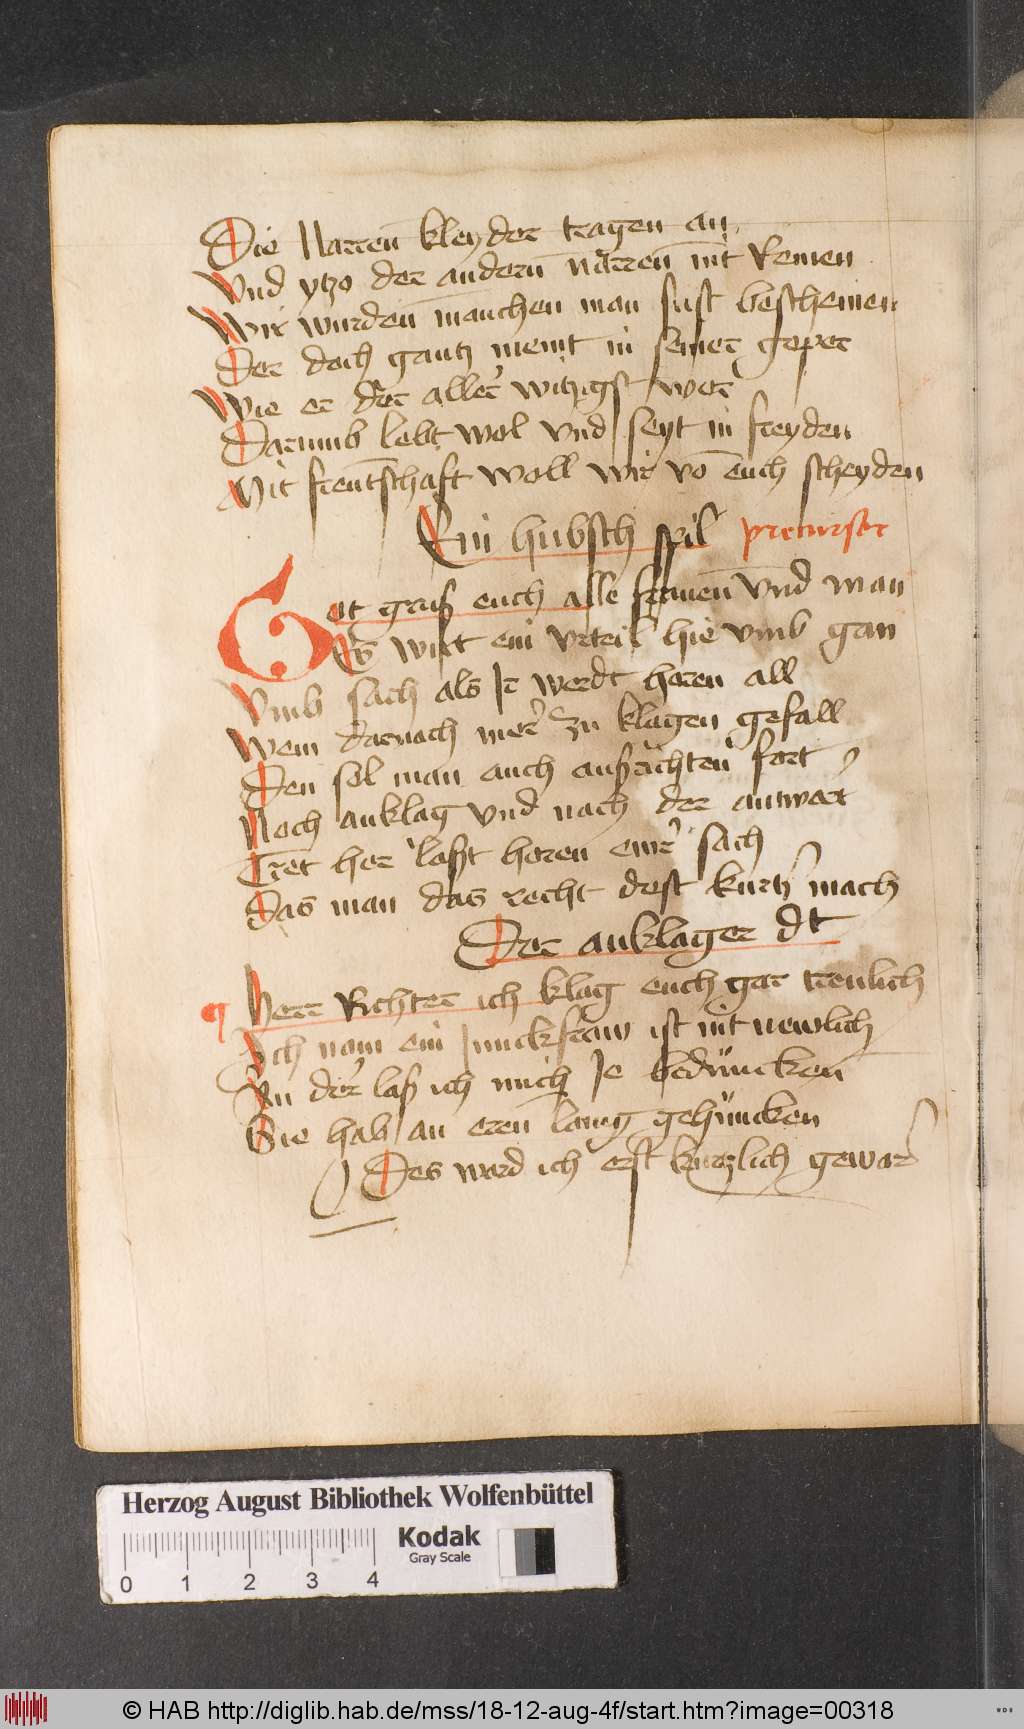 Die Narren kleyder tragen an
Vnd ytzo der andern narren mit Remen
Wir wurden manchen man sust beschemen
Der doch gantz meint in seiner geper
Wie er der aller witzigst wer
Darumb lebt wol vnd seyt in freyden
Mit frentschaft woll wir vō euch scheyden
Ein hubsch spil precursor
Got gruß euch alle frawen vnd man
Es wirt ein vrteil hie vmb gan
Vmb sach als Ir werdt horen all
Wem darnach mer zu klagen gefall
Den sol man auch außrichten fort
Noch anklag vnd nach der antwort
Tret her laßt horen ewr sach
Das man das recht dest kurtz mach
Der anklager dt
Herr Richter ich klag euch gar trewlich
Ich nam ein Junckfraw ist nit newlich
An der laß ich mich Je beduncken
Sie hab an eren lang gehuncken
Des ward ich erst kurtzlich gewar
Herzog August Bibliothek Wolfenbüttel
Kodak
Gray Scale
0 1 2 3 4
© HAB http://diglib.hab.de/mss/18-12-aug-4f/start.htm?image=00318